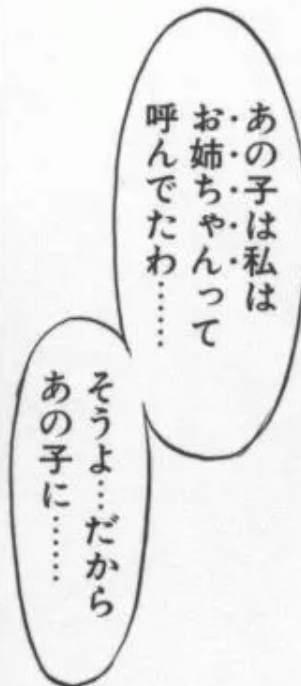 あの子は私は
お姉ちゃんって
呼んでたわ……
そうよ…だから
あの子に……